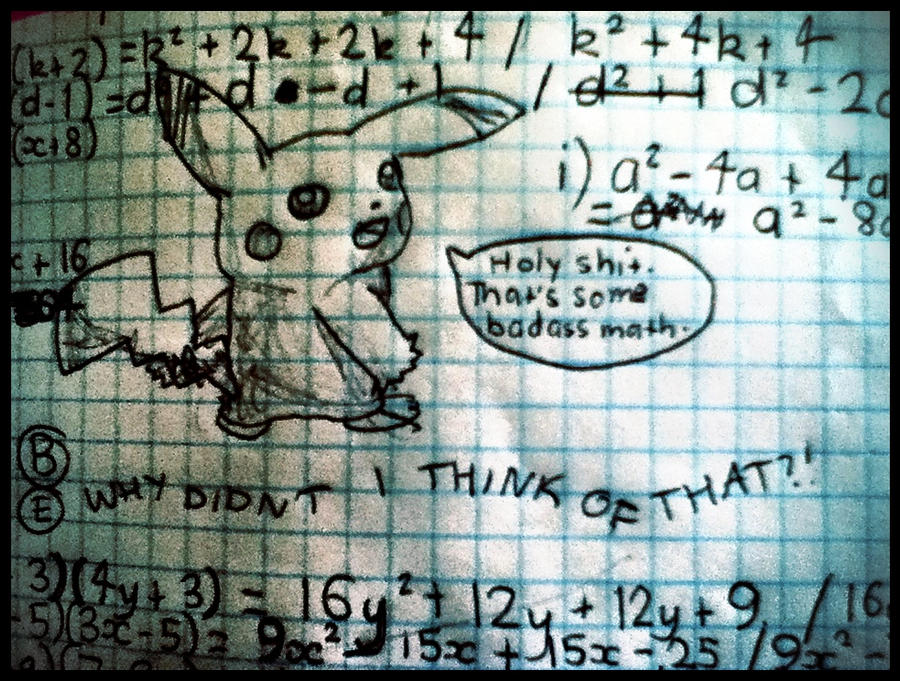 (k+2) = k² + 2k + 2k + 4 / k² + 4k + 4
(d-1) = d² + d - d + 1 / d² + 1 d² - 2
(x+8)
i) a² - 4a + 4a
= a² - 8
x + 16
Holy shit.
That's some
badass math.
B
E WHY DIDN'T I THINK OF THAT?!
3)(4y+3) = 16y² + 12y + 12y + 9 / 16
-5)(3x-5) = 9x² - 15x + 15x - 25 / 9x² -